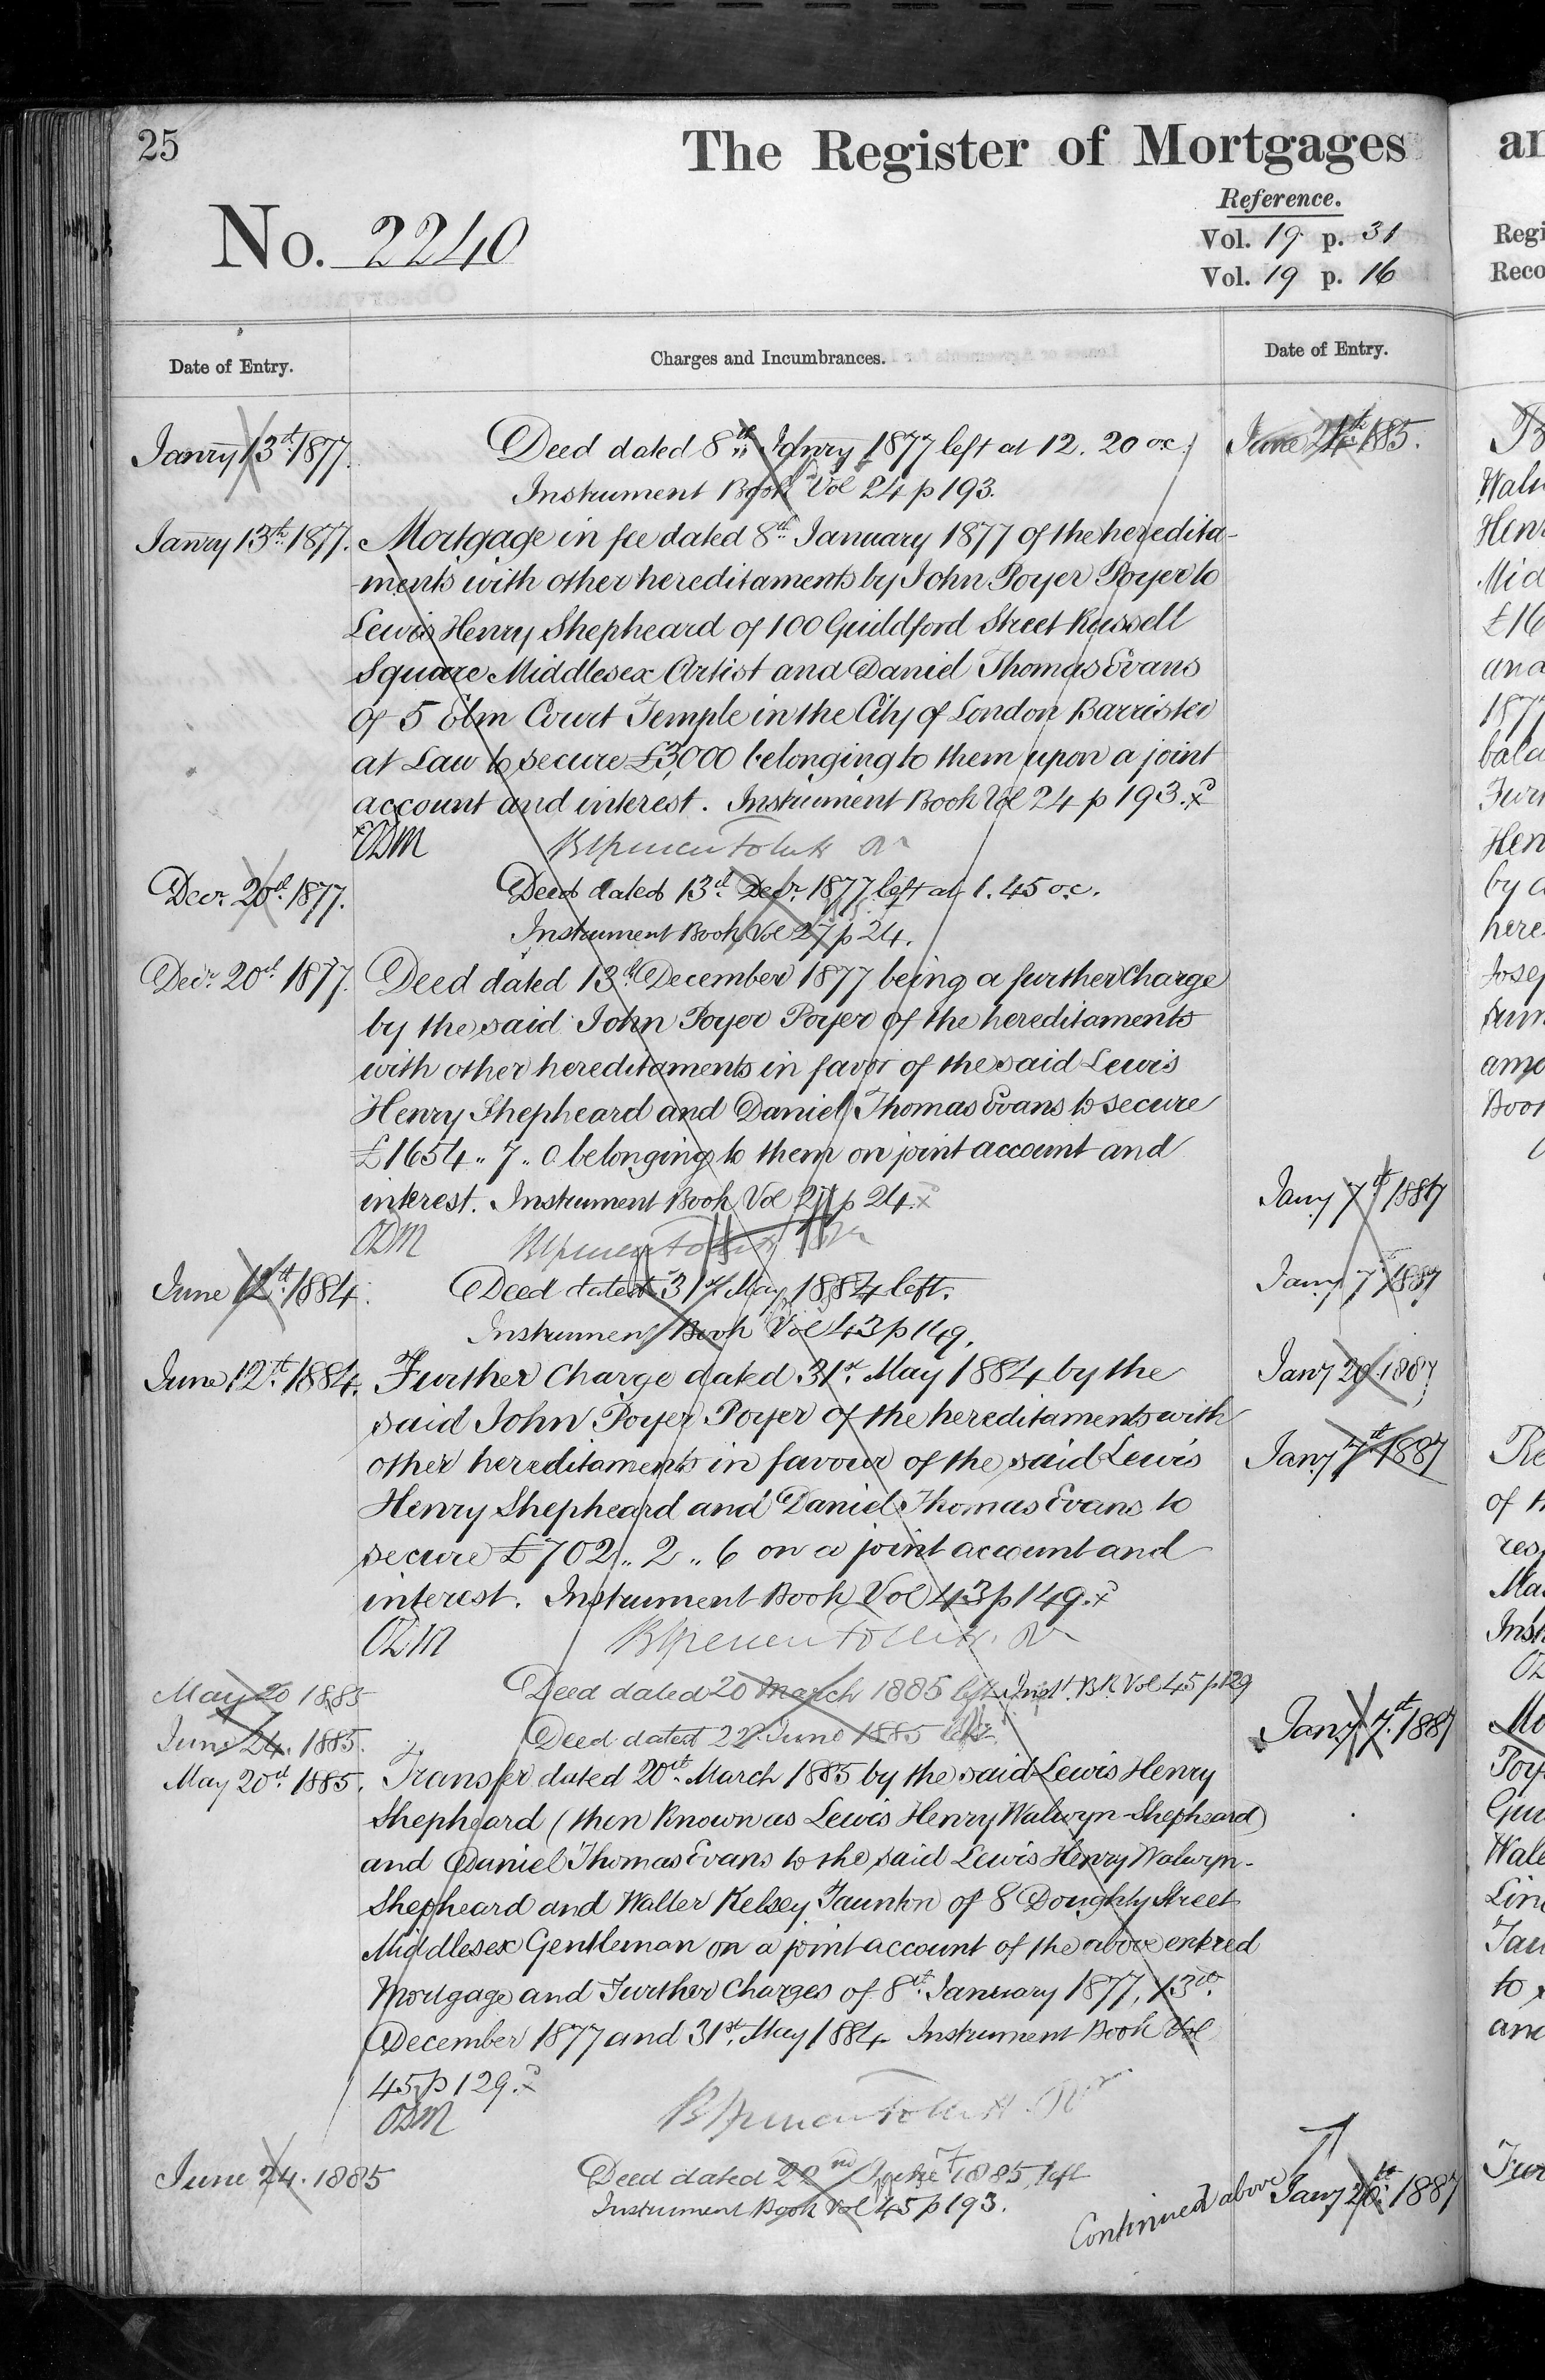 25
The Register of Mortgages
No. 2240
Reference.
Vol. 19 p. 31
Vol. 19 p. 16
Date of Entry.
Charges and Incumbrances.
Date of Entry.
Janry 13th 1877. Deed dated 8th Janry 1877 left at 12. 20 oc. June 24th 1885.
Instrument Book Vol 24 p 193.
Janry 13th 1877. Mortgage in fee dated 8th January 1877 of the heredita-
-ments with other hereditaments by John Poyer Poyer to
Lewis Henry Shepheard of 100 Guildford Street Russell
Square Middlesex Artist and Daniel Thomas Evans
of 5 Elm Court Temple in the City of London Barrister
at Law to secure £3,000 belonging to them upon a joint
account and interest. Instrument Book Vol 24 p 193.
ODM
Decr 20th 1877. Deed dated 13th Decr 1877 left at 1. 45 o.c.
Instrument Book Vol 27 p 24.
Decr 20th 1877. Deed dated 13th December 1877 being a further Charge
by the said John Poyer Poyer of the hereditaments
with other hereditaments in favor of the said Lewis
Henry Shepheard and Daniel Thomas Evans to secure
£1654 .. 7 .. 0 belonging to them on joint account and
interest. Instrument Book Vol 27 p 24.
Jany 7th 1887
ODM
June 12th 1884. Deed dated 31st May 1884 left.
Jany 7th 1887
Instrument Book Vol 43 p 149.
June 12th 1884. Further Charge dated 31st May 1884 by the
Jany 20. 1887
said John Poyer Poyer of the hereditaments with
other hereditaments in favour of the said Lewis
Jany 7th 1887
Henry Shepheard and Daniel Thomas Evans to
secure £702 .. 2 .. 6 on a joint account and
interest. Instrument Book Vol 43 p 149.
ODM
May 20 1885 Deed dated 20 March 1885 left Inst. Bk. Vol 45 p 129
June 24. 1885. Deed dated 22 June 1885 left.
Jany 7th 1887
May 20th 1885. Transfer dated 20th March 1885 by the said Lewis Henry
Shepheard (then known as Lewis Henry Walwyn-Shepheard)
and Daniel Thomas Evans to the said Lewis Henry Walwyn-
Shepheard and Walter Kelsey Taunton of 8 Doughty Street
Middlesex Gentleman on a joint account of the above entered
Mortgage and Further Charges of 8th January 1877, 13th
December 1877 and 31st May 1884 Instrument Book Vol
45 p 129.
ODM
June 24. 1885 Deed dated 22nd June 1885 left
Instrument Book Vol 45 p 193.
Continued above
Jany 20th 1887